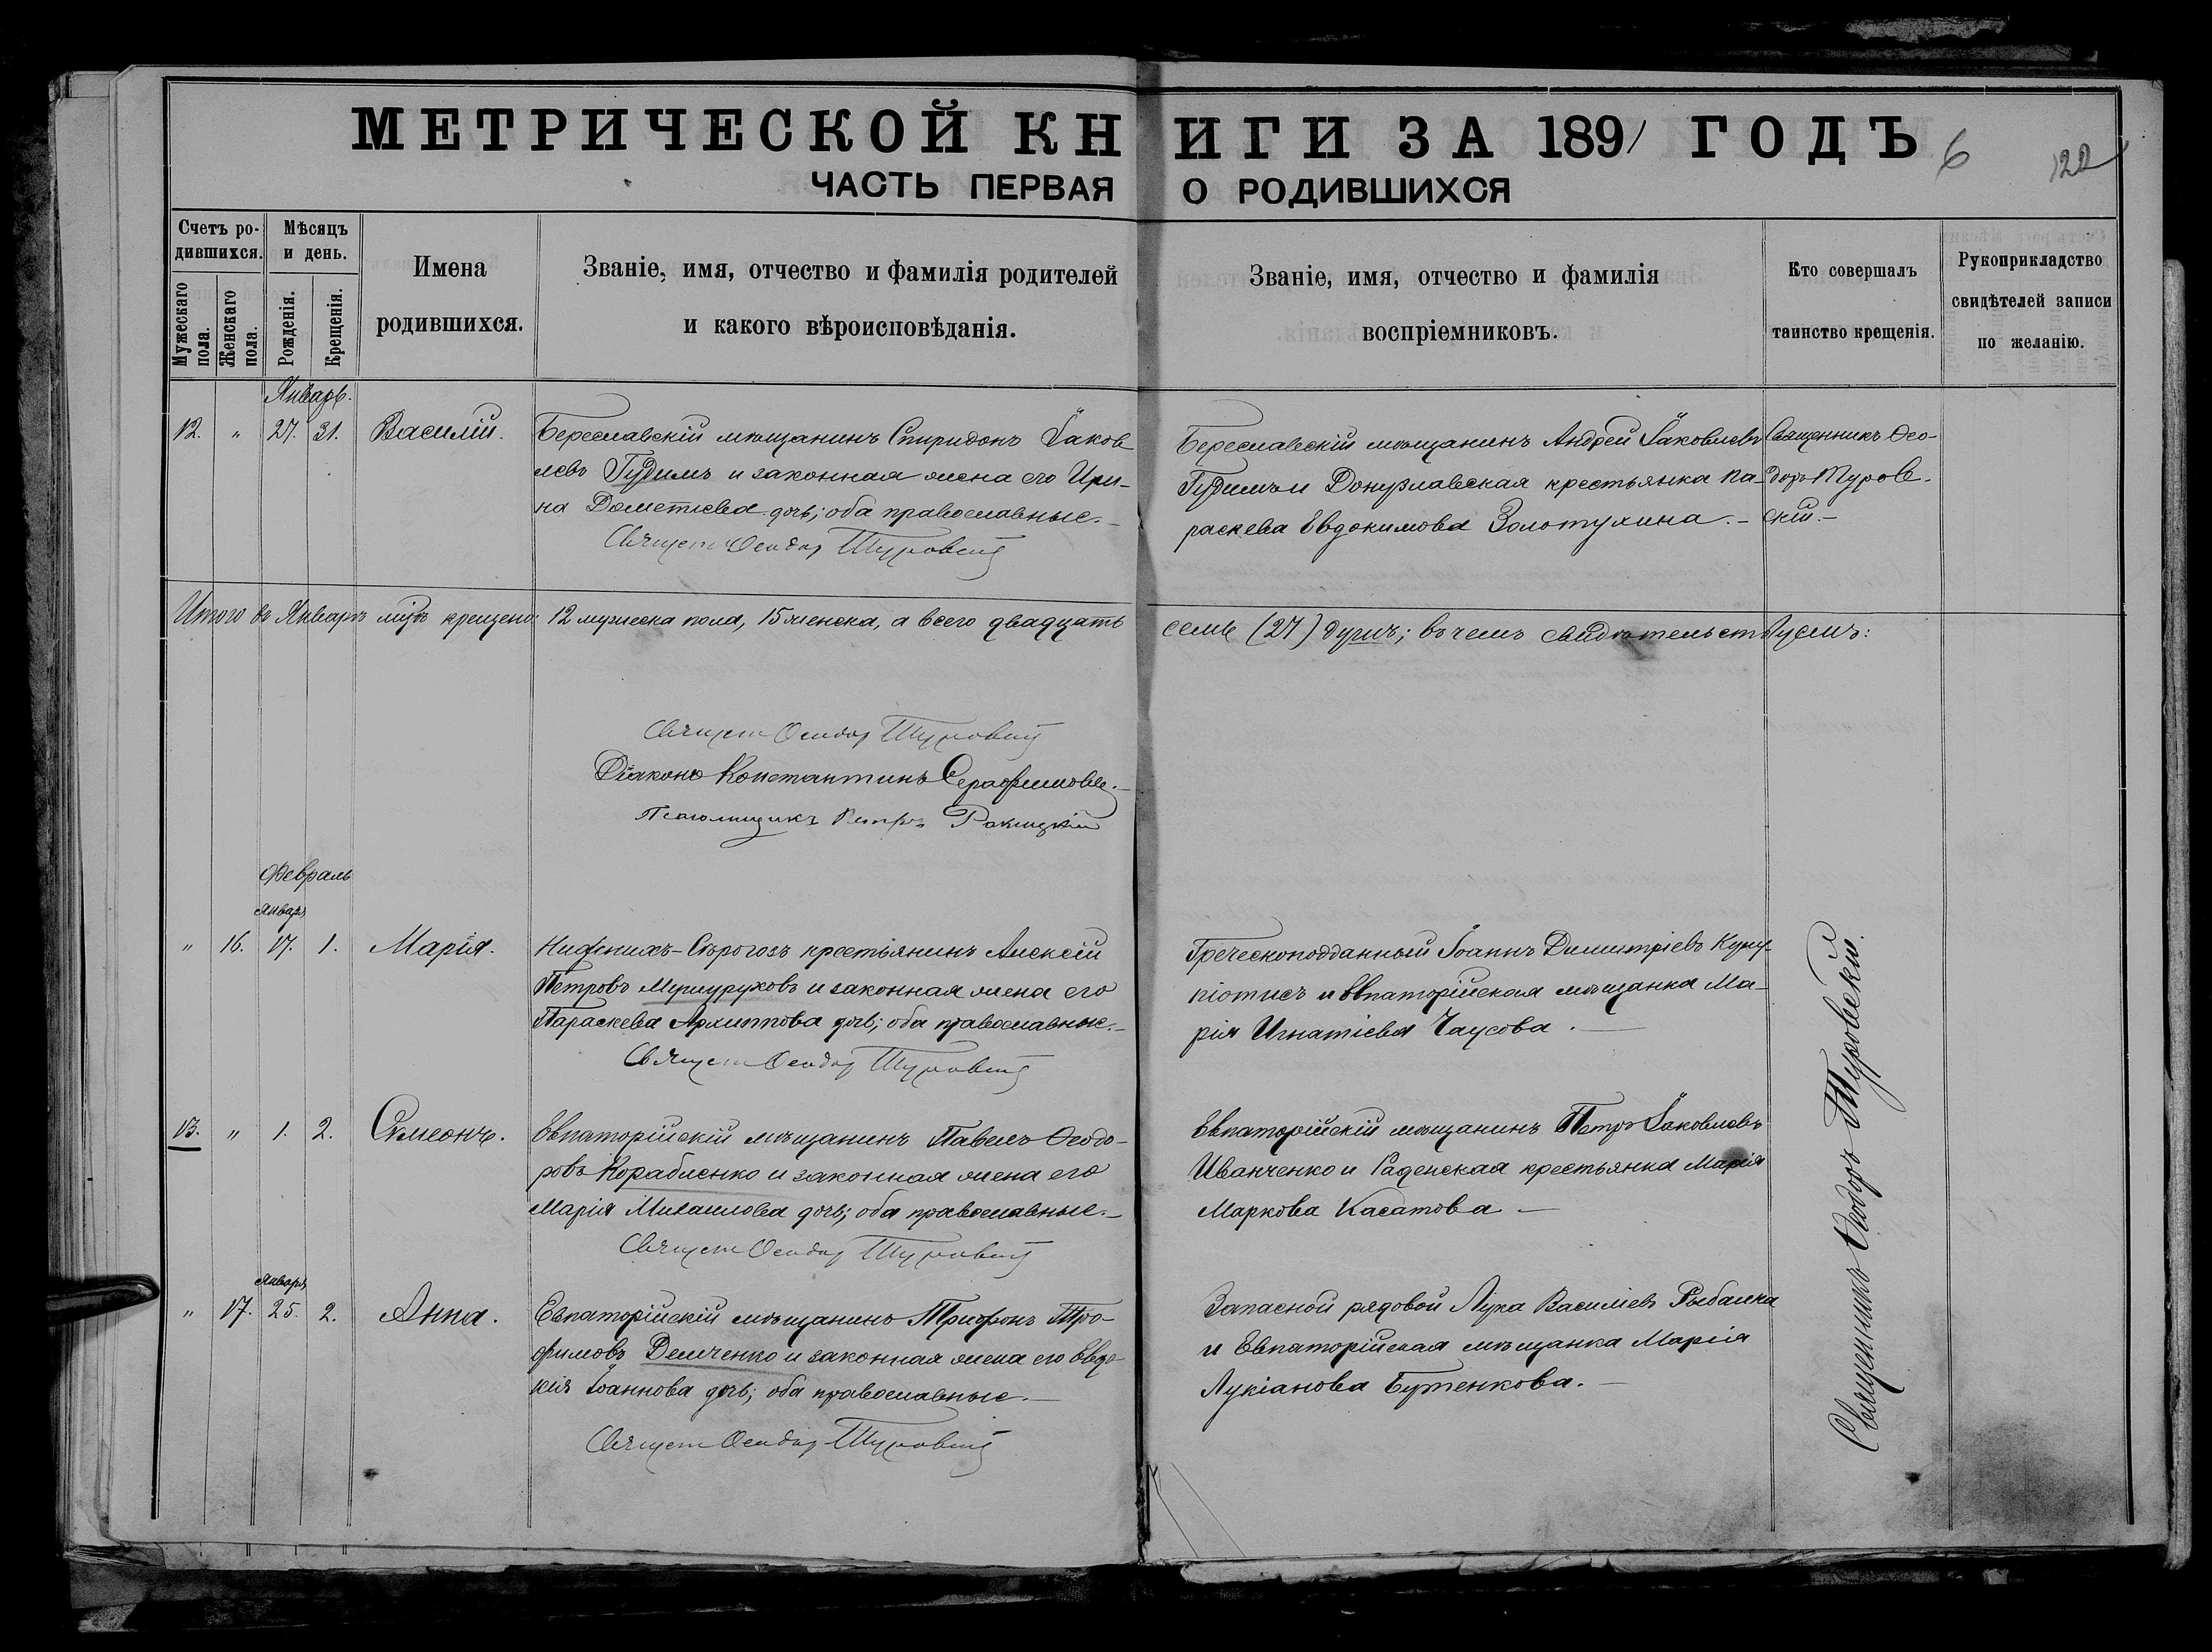 МЕТРИЧЕСКОЙ КНИГИ ЗА 1891 ГОДЪ
6
122
ЧАСТЬ ПЕРВАЯ О РОДИВШИХСЯ
Счетъ ро-
дившихся.
Мѣсяцъ
и день.
Мужескаго
пола.
Женскаго
пола.
Рожденія.
Крещенія.
Имена
родившихся.
Званіе, имя, отчество и фамилія родителей
и какого вѣроисповѣданія.
Званіе, имя, отчество и фамилія
воспріемниковъ.
Кто совершалъ
таинство крещенія.
Рукоприкладство
свидѣтелей записи
по желанію.
Январь.
12. " 27. 31. Василій.
Береславскій мѣщанинъ Спиридонъ Іаков
левъ Гудимъ и законная жена его Ири-
на Дометіева дочь; оба православные.-
Священ Ѳеодор Туровскій
Береславскій мѣщанинъ Андрей Іаковлевъ
Гудимъ и Донузлавская крестьянка Па-
раскева Евдокимова Золотухина.-
Священникъ Ѳео-
доръ Туров-
скій.-
Итого въ Январѣ мцѣ крещено: 12 мужеска пола, 15 женска, а всего двадцать семь (27) душъ; въ чемъ свидѣтельствуемъ:
Священ Ѳеодор Туровскій
Діаконъ Константинъ Серафимовъ.-
Псаломщикъ Петръ Ракицкій
Февраль
Январь
" 16. 17. 1. Марія.
крестьянинъ Алексій
Петровъ и законная жена его
Параскева Архиппова дочь; оба православные.-
Священ Ѳеодор Туровскій
Греческоподданный Іоаннъ Димитріевъ
и Евпаторійская мѣщанка Ма-
рія Игнатіева Чаусова.-
13. " 1. 2. Симеонъ.
Евпаторійскій мѣщанинъ Павелъ Ѳеодо-
ровъ Корабленко и законная жена его
Марія Михаилова дочь; оба православные.-
Священ Ѳеодор Туровскій
Евпаторійскій мѣщанинъ Петръ Іаковлевъ
Иванченко и Раденская крестьянка Марія
Маркова Касатова -
Январь
" 17. 25. 2. Анна.
Евпаторійскій мѣщанинъ Трифонъ Тро-
фимовъ Демченко и законная жена его Евдо-
кія Іоаннова дочь; оба православные.-
Священ Ѳеодор Туровскій
Запасной рядовой Лука Василіевъ Рыбалка
и Евпаторійская мѣщанка Марія
Лукіанова Бутенкова.-
Священникъ Ѳеодоръ Туровскій.